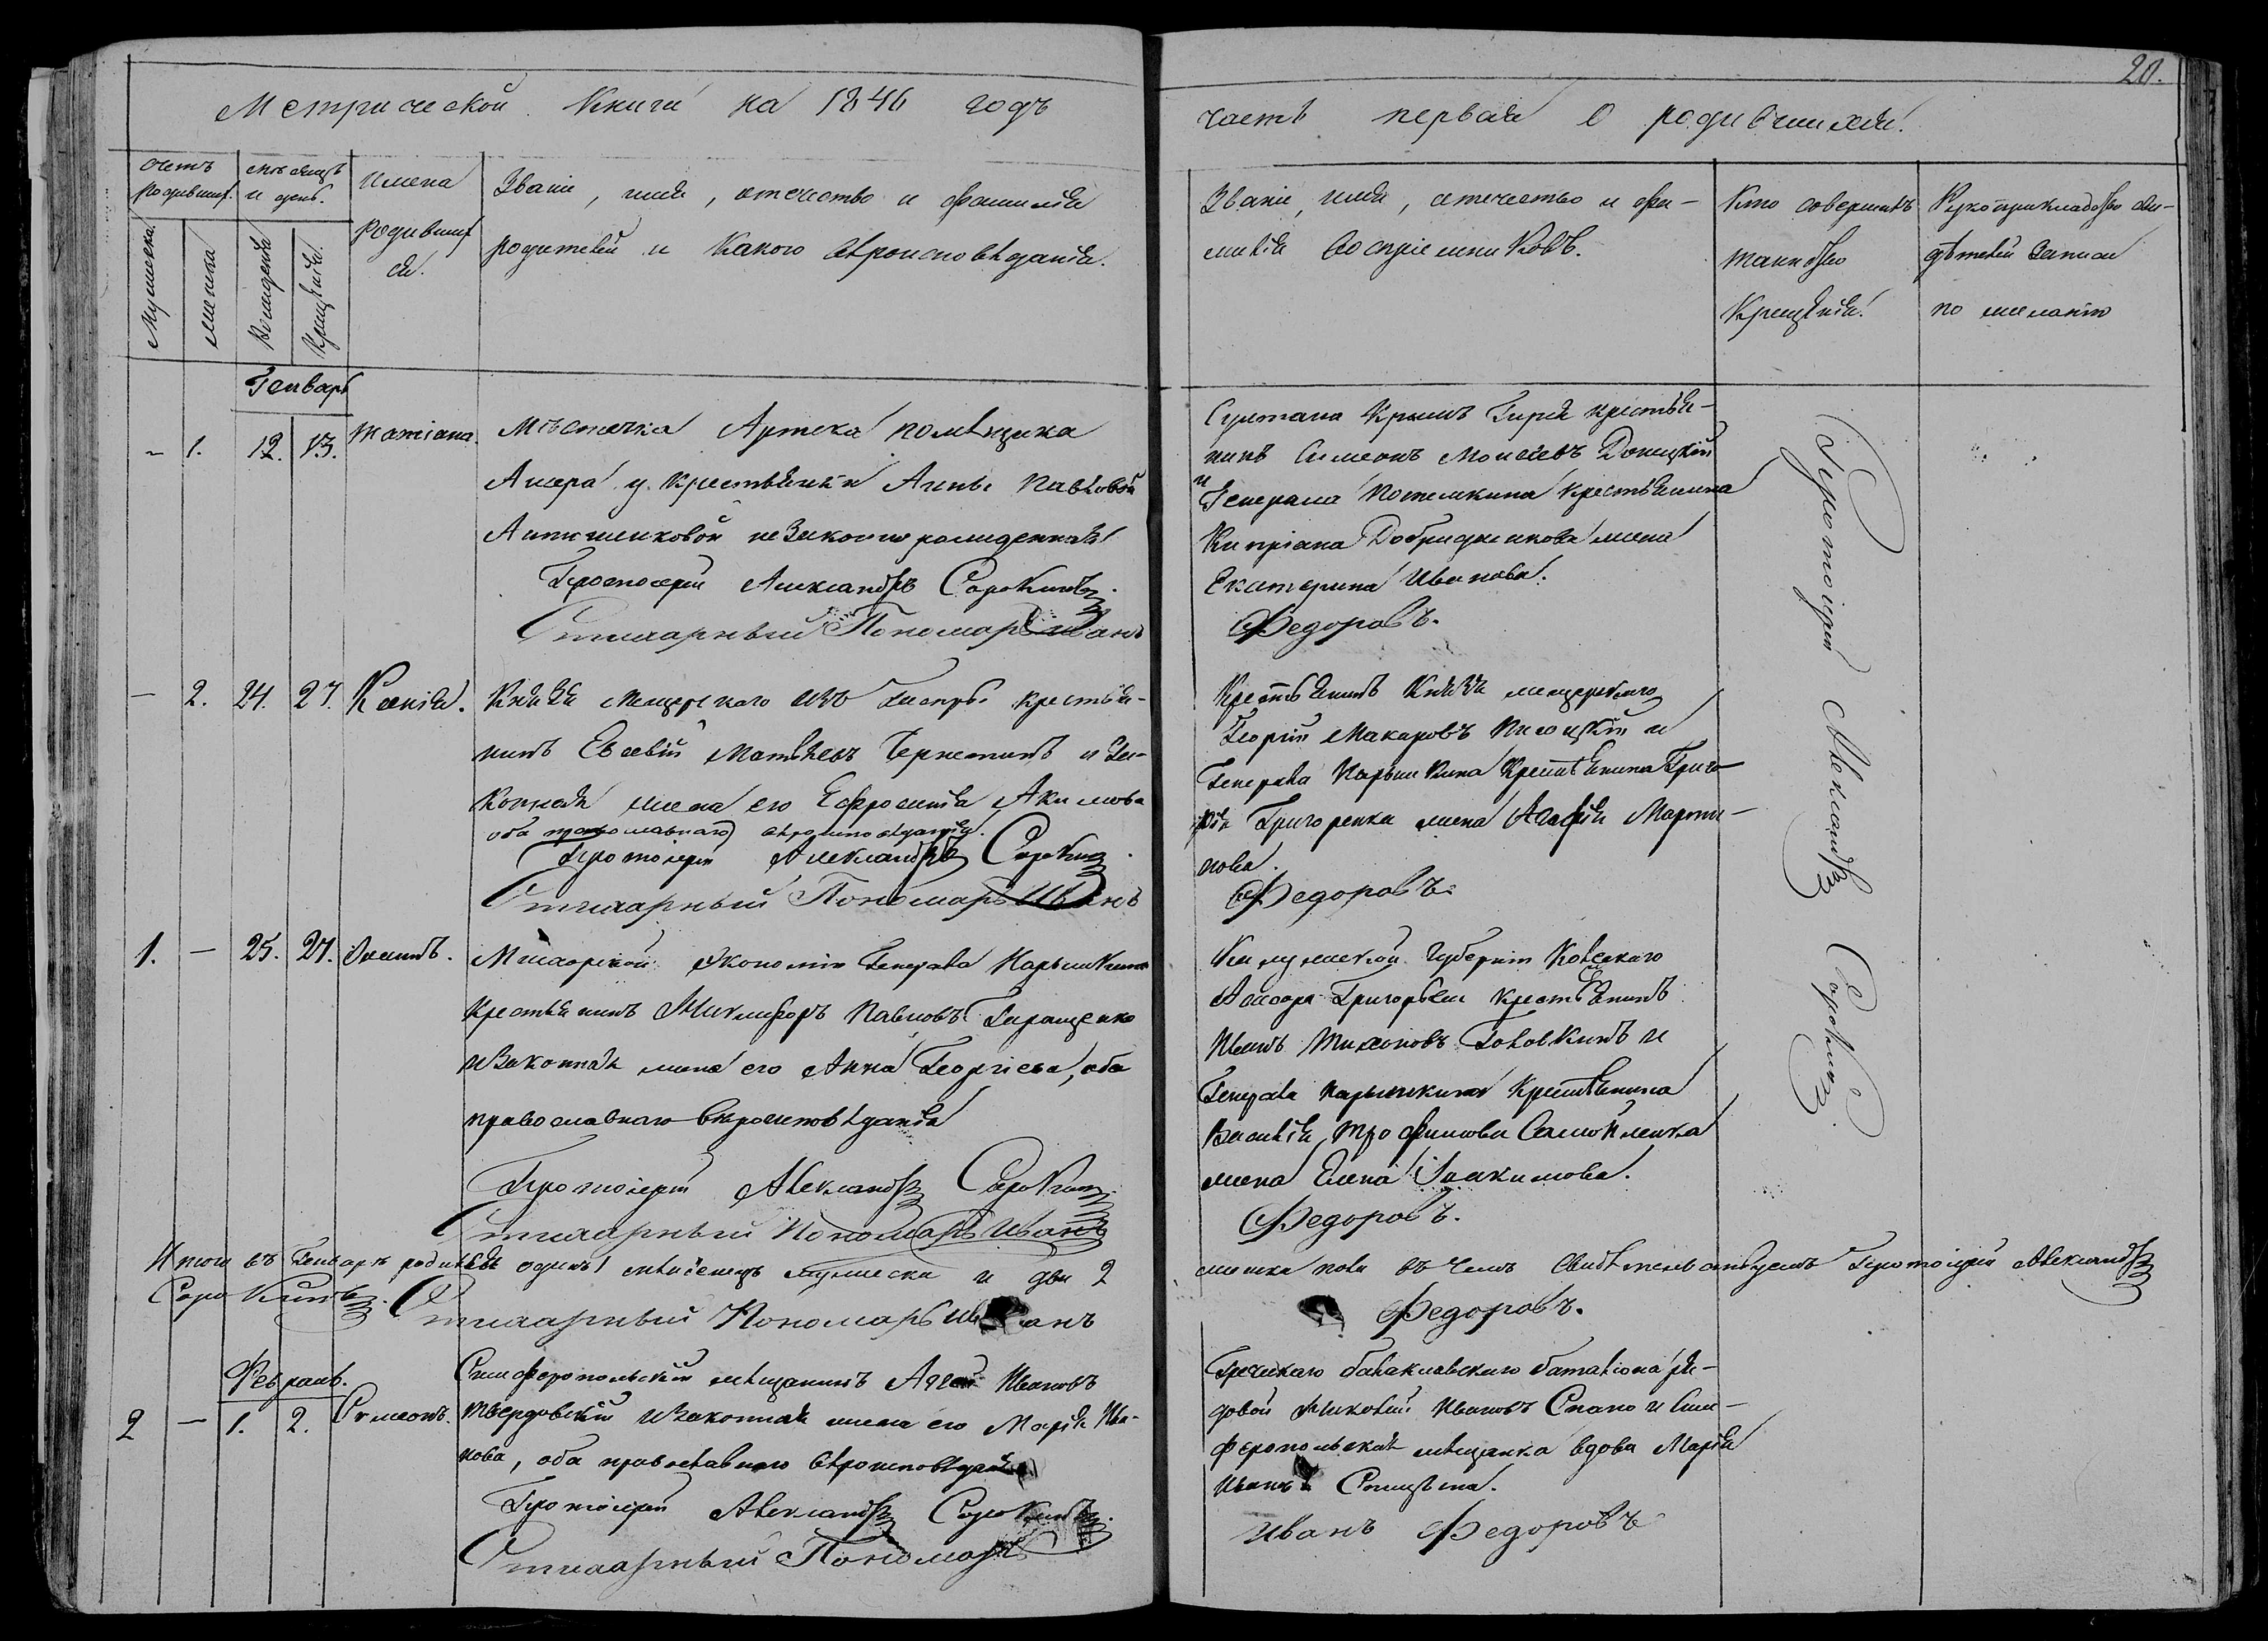 20.
Метрической Книги на 1846 годъ
часть первая о родившихся.
Счетъ родивших.
мужеска.
женска
месяцъ и день.
Рожденiя
Крещенiя.
Имена
родивших
ся.
Званiе, имя, отечество и фамилiя
родителей и какого вѣроисповѣданiя.
Званiе, имя, отечество и фа-
милiя воспрiемниковъ.
Кто совершалъ
таинство
Крещенiя.
Рукоприкладство сви-
дѣтелей записи
по желанiю
Генварь
- 1. 12. 13. Татiана.
Мѣстечка Артека помѣщика
Ашера у крестьянки Анны Павловой
незаконно рожденная
Протоiерей Александръ Сорокинъ.
Стихарный Пономарь Иванъ
Султана Крымъ Гирея крестья-
нинъ Симеонъ Моисеевъ Донецкiй
и
Генерала Потемкина крестьянина
Кипрiана жена
Екатерина Иванова.
Федоровъ.
— 2. 24. 27. Ксенiя.
Князя Мещерскаго изъ крестья-
нинъ Евсевiй Матвѣевъ и за-
конная жена его Ефросинiа Акимова
оба православнаго вѣроисповѣданiя.
Протоiерей Александръ Сорокинъ.
Стихарный Пономарь Иванъ
Крестьянинъ Князя Мещерскаго
Георгiй Макаровъ и
Генерала Нарышкина крестьянина Григо-
рiя Григоренка жена Агафiя Марти-
нова.
Федоровъ.
1. — 25. 27. Iоаннъ.
Мисхорской Экономiи Генерала Нарышкина
крестьянинъ Никифоръ Павловъ Геращенко
и законная жена его Анна Георгiева, оба
православнаго вѣроисповѣданiя
Протоiерей Александръ Сорокинъ.
Стихарный Пономарь Иванъ
Калужской Губернiи
Григорьева крестьянинъ
Иванъ Тихоновъ Головкинъ и
Генерала Нарышкина крестьянина
Василiя Трофимова Самойленка
жена Елена Iоакимова.
Федоровъ.
Протоiерей Александръ Сорокинъ.
Итого въ Генварѣ родился одинъ 1 младенецъ мужеска и два 2
женска пола въ чемъ свидѣтельствуемъ Протоiерей Александръ
Сорокинъ.
Стихарный Пономарь Иванъ
Федоровъ.
Февраль.
2 — 1. 2. Симеонъ.
Симферопольскiй мѣщанинъ Ивановъ
Твердовскiй и законная жена его Марiя Ива-
нова, оба православнаго вѣроисповѣданiя
Протоiерей Александръ Сорокинъ.
Стихарный Пономарь
Греческаго балаклавскаго баталiона ря-
довой Николай Ивановъ Спано и Сим-
феропольская мѣщанка вдова Марiя
Иванъ Федоровъ